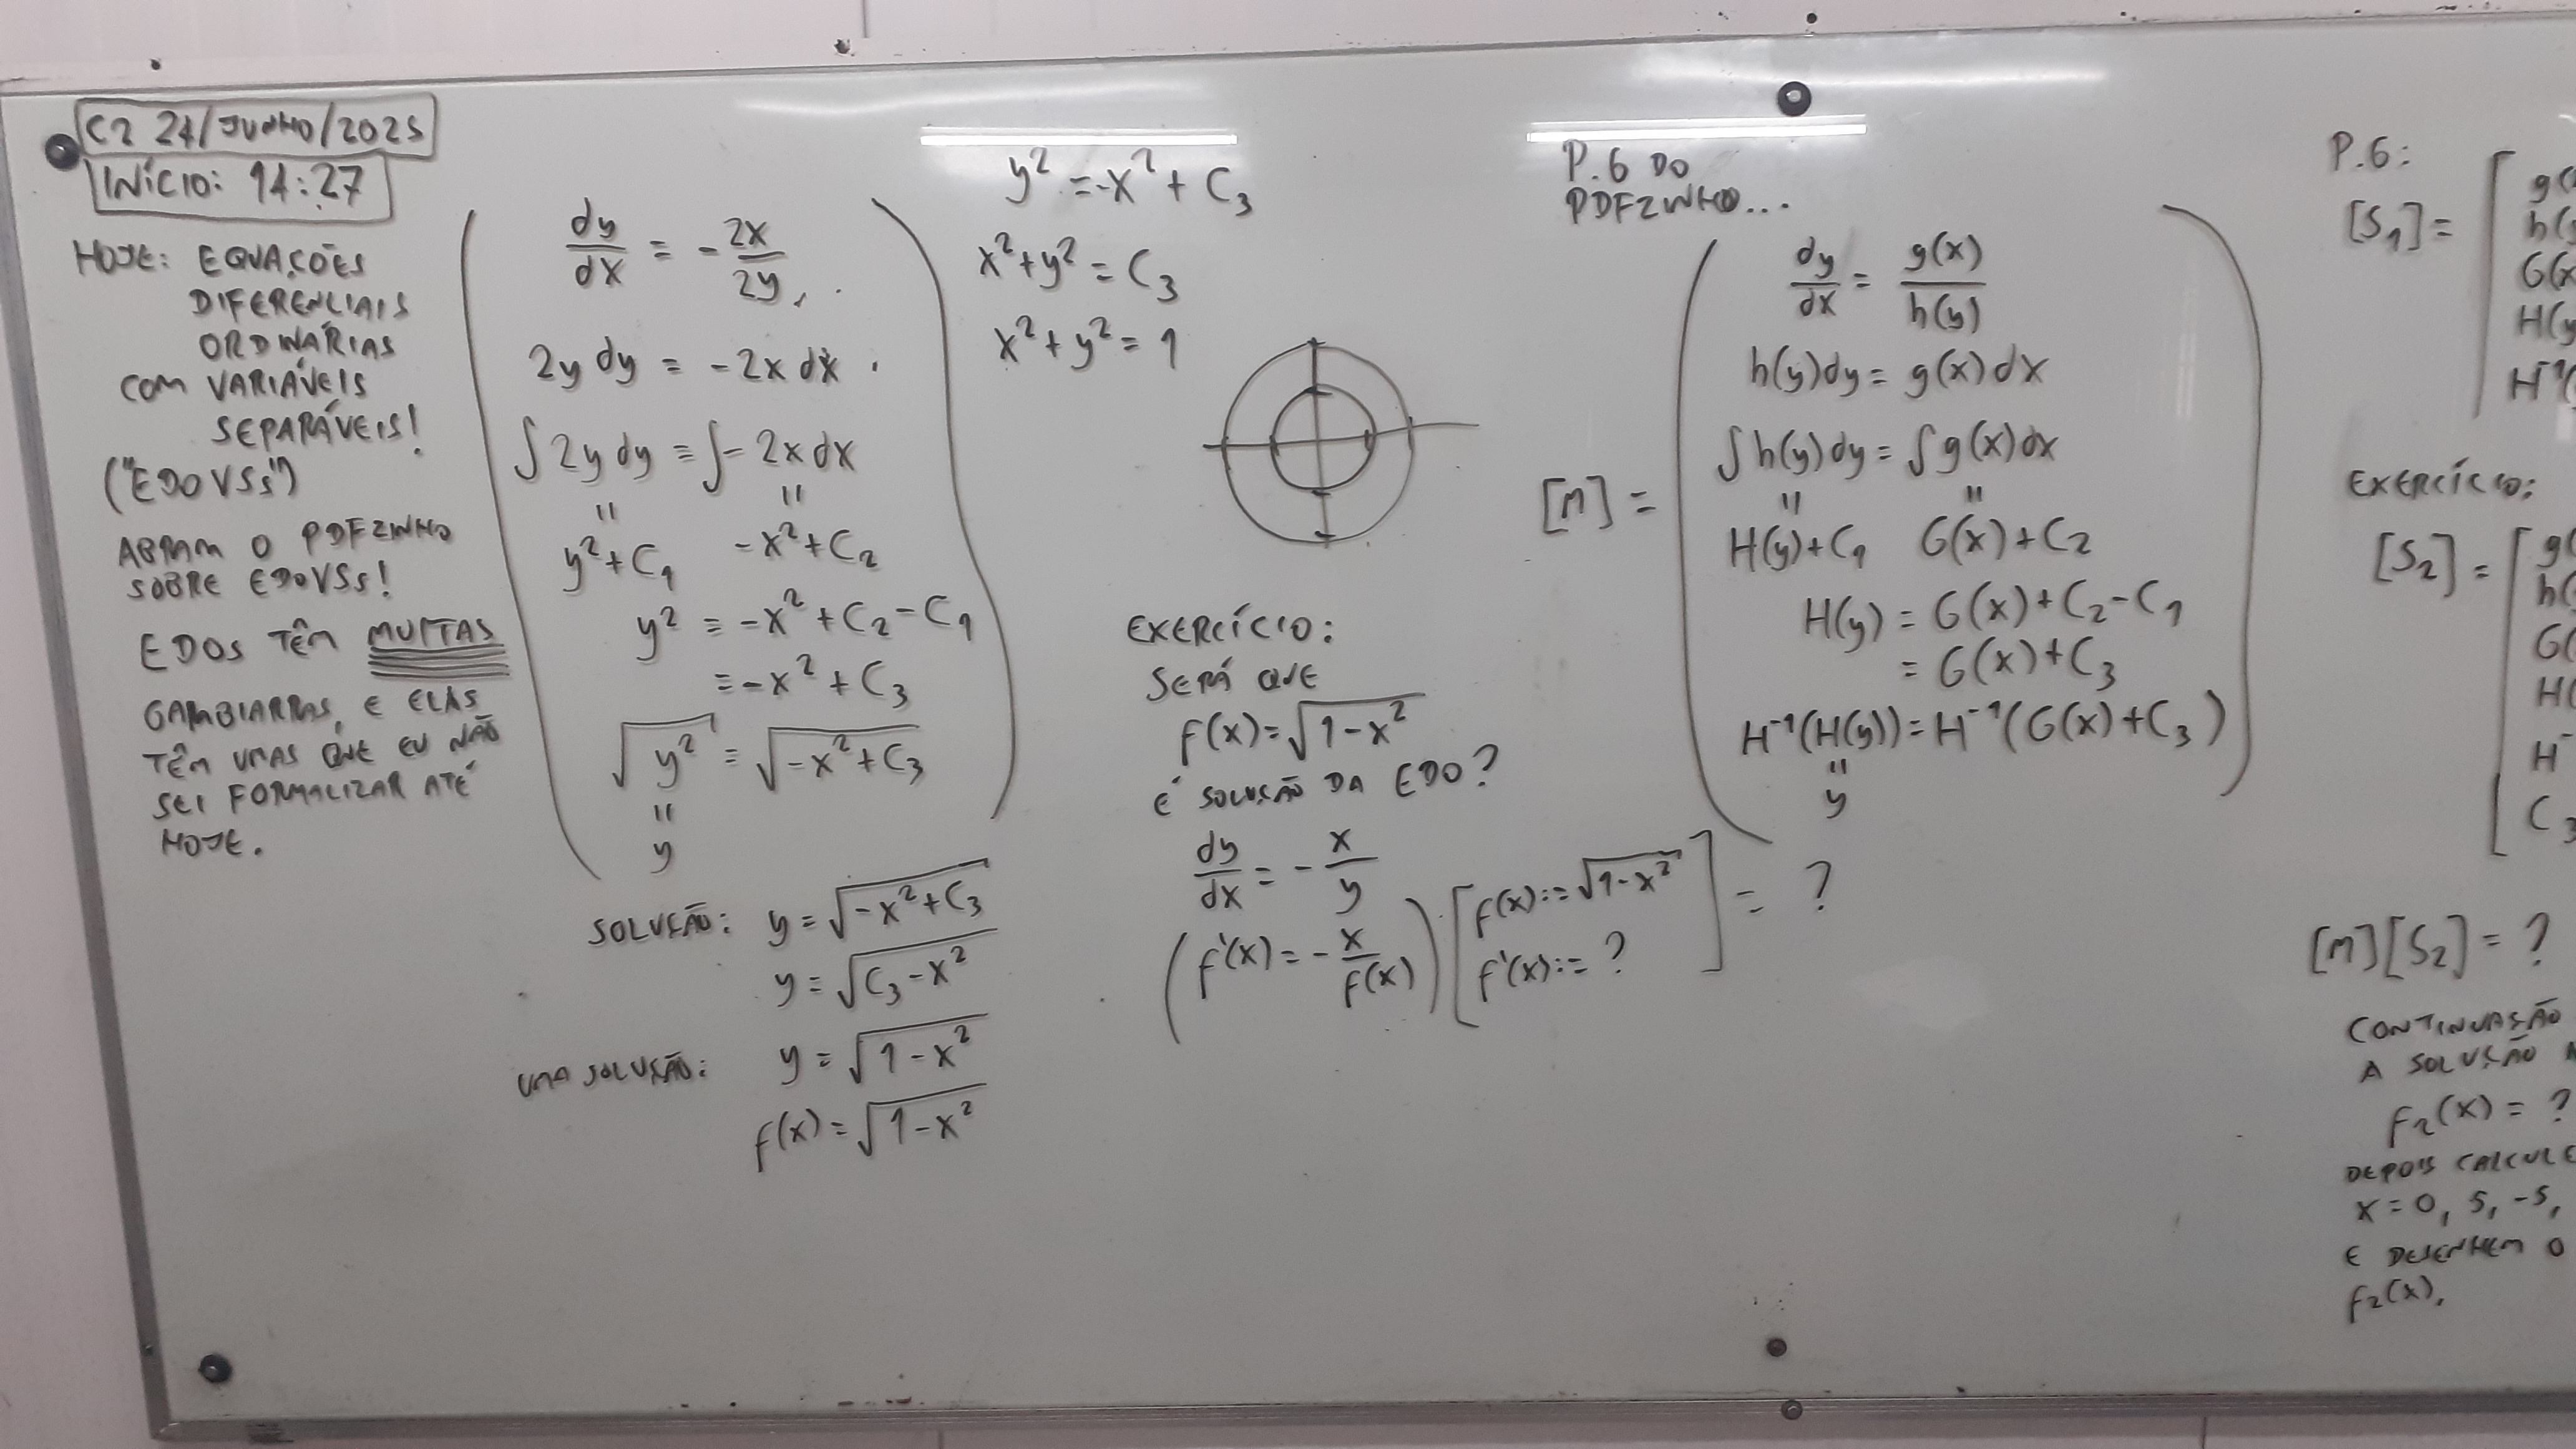 C2 24/JUNHO/2025
INÍCIO: 14:27
HOJE: EQUAÇÕES
DIFERENCIAIS
ORDINÁRIAS
COM VARIÁVEIS
SEPARÁVEIS!
("EDOVSs")
ABRAM O PDFZINHO
SOBRE EDOVSs!
EDOS TÊM MUITAS
GAMBIARRAS, E ELAS
TÊM UMAS QUE EU NÃO
SEI FORMALIZAR ATÉ
HOJE.
dy/dx = -2x/2y
2y dy = -2x dx
∫2y dy = ∫-2x dx
" "
y²+C₁ -x²+C₂
y² = -x²+C₂-C₁
= -x²+C₃
√y² = √-x²+C₃
"
y
SOLUÇÃO: y = √-x²+C₃
y = √C₃-x²
UMA SOLUÇÃO: y = √1-x²
f(x) = √1-x²
y² = -x²+C₃
x²+y² = C₃
x²+y² = 1
EXERCÍCIO:
SERÁ QUE
f(x) = √1-x²
É SOLUÇÃO DA EDO?
dy/dx = -x/y
(f'(x) = -x/f(x)) [f(x) := √1-x²
f'(x) := ?] = ?
P.6 DO
PDFZINHO...
[M] =
dy/dx = g(x)/h(y)
h(y)dy = g(x)dx
∫h(y)dy = ∫g(x)dx
" "
H(y)+C₁ G(x)+C₂
H(y) = G(x)+C₂-C₁
= G(x)+C₃
H⁻¹(H(y)) = H⁻¹(G(x)+C₃)
"
y
P.6:
[S₁] =
EXERCÍCIO:
[S₂] =
[M][S₂] = ?
CONTINUAÇÃO
A SOLUÇÃO
f₂(x) = ?
DEPOIS CALCULE
x = 0, 5, -5,
E DESENHEM O
f₂(x).